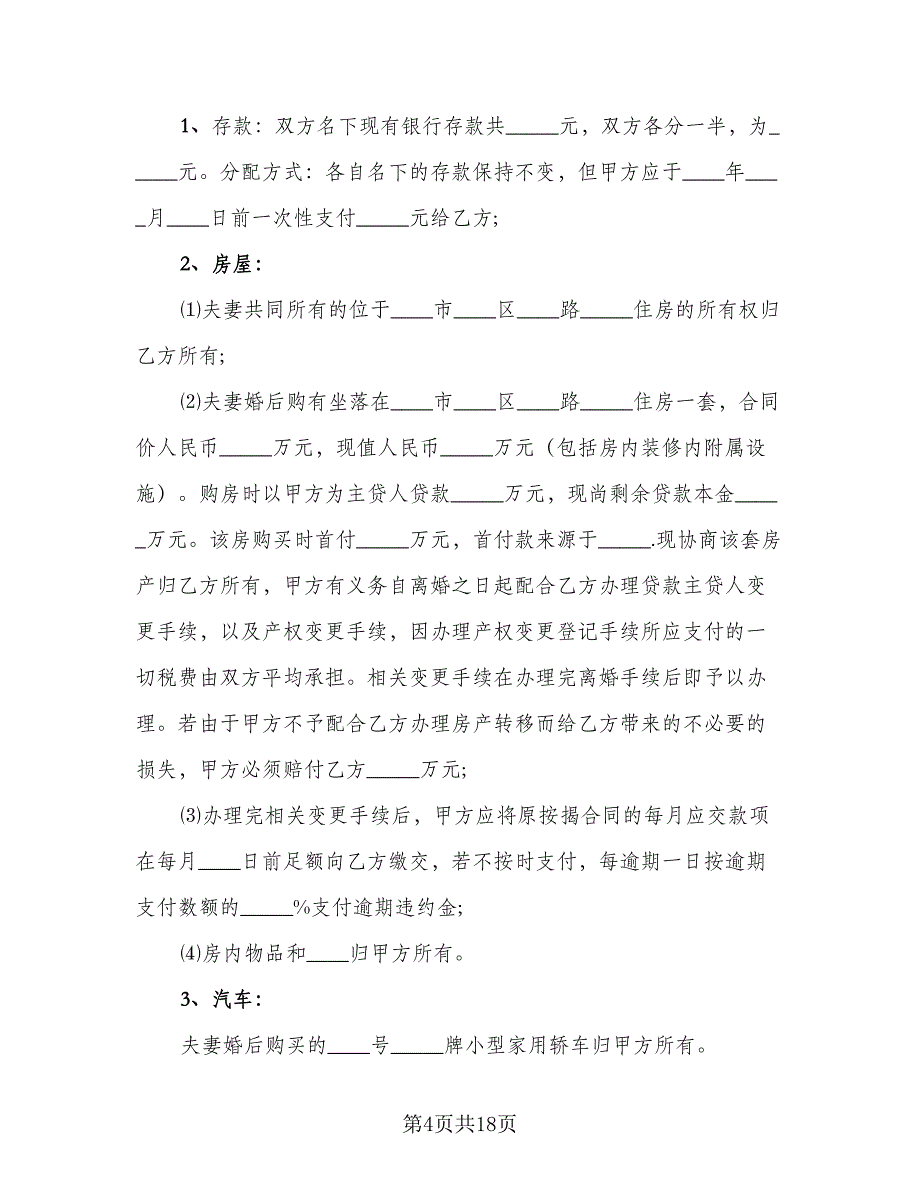 1、存款：双方名下现有银行存款共_____元，双方各分一半，为_
____元。分配方式：各自名下的存款保持不变，但甲方应于____年___
_月____日前一次性支付_____元给乙方;
2、房屋：
⑴夫妻共同所有的位于____市____区____路_____住房的所有权归
乙方所有;
⑵夫妻婚后购有坐落在____市____区____路_____住房一套，合同
价人民币_____万元，现值人民币_____万元（包括房内装修内附属设
施）。购房时以甲方为主贷人贷款_____万元，现尚剩余贷款本金____
_万元。该房购买时首付_____万元，首付款来源于_____.现协商该套房
产归乙方所有，甲方有义务自离婚之日起配合乙方办理贷款主贷人变
更手续，以及产权变更手续，因办理产权变更登记手续所应支付的一
切税费由双方平均承担。相关变更手续在办理完离婚手续后即予以办
理。若由于甲方不予配合乙方办理房产转移而给乙方带来的不必要的
损失，甲方必须赔付乙方_____万元;
⑶办理完相关变更手续后，甲方应将原按揭合同的每月应交款项
在每月____日前足额向乙方缴交，若不按时支付，每逾期一日按逾期
支付数额的_____%支付逾期违约金;
⑷房内物品和____归甲方所有。
3、汽车：
夫妻婚后购买的____号_____牌小型家用轿车归甲方所有。
第4页共18页